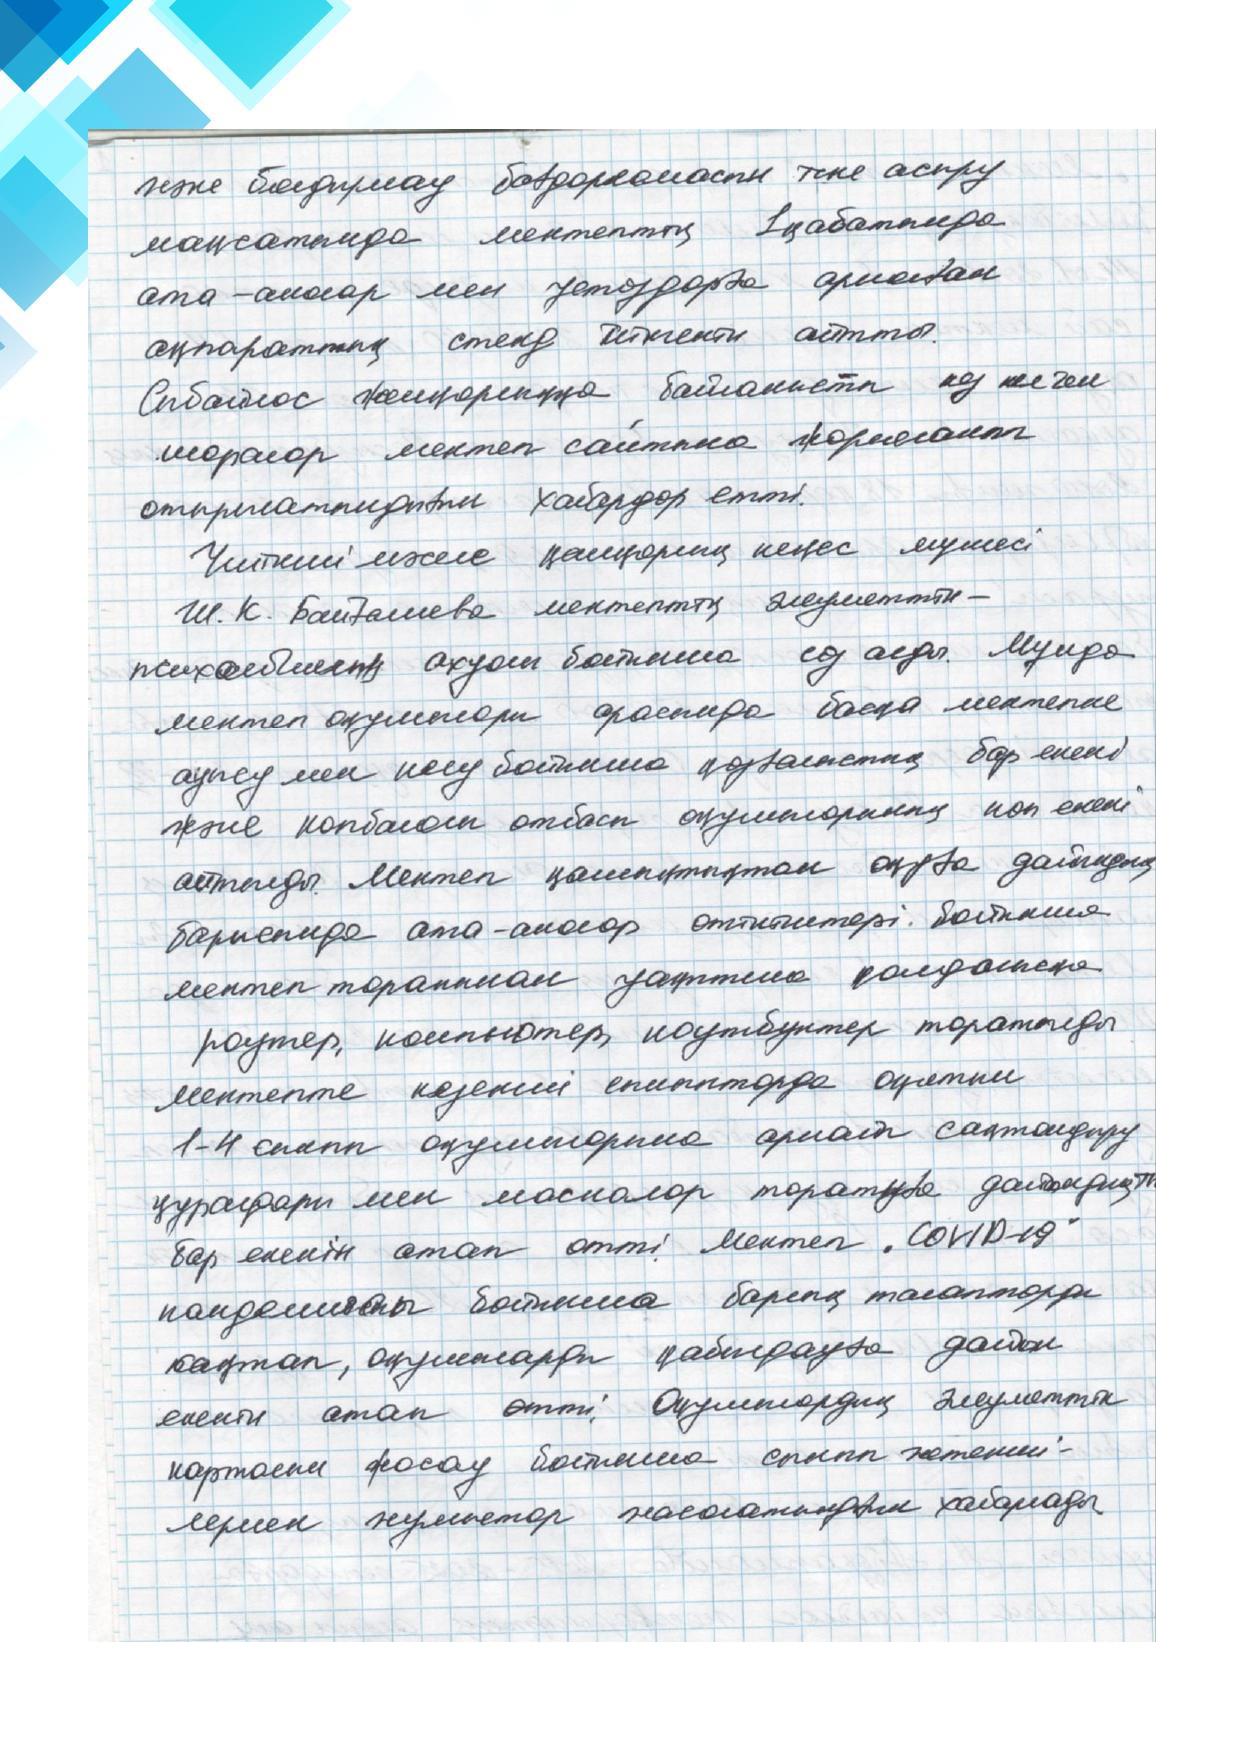 және болдырмау бағдарламасын іске асыру
мақсатында мектептің 1 қабатында
ата-аналар мен ұстаздарға арналған
ақпараттық стенд ілінгенін айтты.
Сыбайлас жемқорлыққа байланысты
шаралар мектеп сайтына жарияланып
отырылатындығын хабардар етті.
Үшінші мәселе қамқорлық кеңес мүшесі
Ш. К. мектептің әлеуметтік-
психологиялық ахуал бойынша сөз алды. Мұнда
мектеп оқушылары арасында басқа мектепке
ауысу мен келу бойынша қозғалыстың бар екені
және көпбалалы отбасы оқушыларының көп екені
айтылды. Мектеп қашықтықтан оқуға дайындық
барысында ата-аналар өтініштері бойынша
мектеп тарапынан уақытша қолданысқа
роутер, компьютер, ноутбуктер таратылды
мектепте кезекші сыныптарда оқитын
1-4 сынып оқушыларына арнап сақтандыру
құралдары мен маскалар таратуға дайындықтың
бар екенін атап өтті. Мектеп „COVID-19"
пандемиясы бойынша барлық талаптарды
сақтап, оқушыларды қабылдауға дайын
екенін атап өтті. Оқушылардың әлеуметтік
картасын жасау бойынша сынып жетекші-
лермен жұмыстар жасалатындығын хабарлады